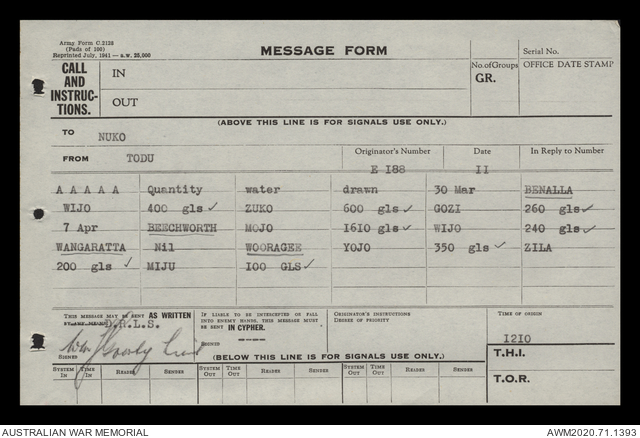 Army Form C.2128
(Pads of 100)
Reprinted July, 1941—s.w. 25,000
MESSAGE FORM
Serial No.
CALL AND INSTRUCTIONS.
IN
OUT
No. of Groups
GR.
OFFICE DATE STAMP
(ABOVE THIS LINE IS FOR SIGNALS USE ONLY.)
TO NUKO
FROM TODU
Originator's Number E I88
Date II
In Reply to Number
A A A A A Quantity water drawn 30 Mar BENALLA
WIJO 400 gls ✓ ZUKO 600 gls ✓ GOZI 260 gls ✓
7 Apr BEECHWORTH MOJO I6I0 gls ✓ WIJO 240 gls ✓
WANGARATTA Nil WOORAGEE YOJO 350 gls ✓ ZILA
200 gls ✓ MIJU I00 GLS ✓
THIS MESSAGE MAY BE SENT AS WRITTEN
D.R.L.S.
SIGNED
IF LIABLE TO BE INTERCEPTED OR FALL INTO ENEMY HANDS, THIS MESSAGE MUST BE SENT IN CYPHER.
SIGNED ----
ORIGINATOR'S INSTRUCTIONS
DEGREE OF PRIORITY
TIME OF ORIGIN
I2I0
T.H.I.
T.O.R.
(BELOW THIS LINE IS FOR SIGNALS USE ONLY.)
SYSTEM IN TIME IN READER SENDER SYSTEM OUT TIME OUT READER SENDER SYSTEM OUT TIME OUT READER SENDER
AUSTRALIAN WAR MEMORIAL
AWM2020.71.1393